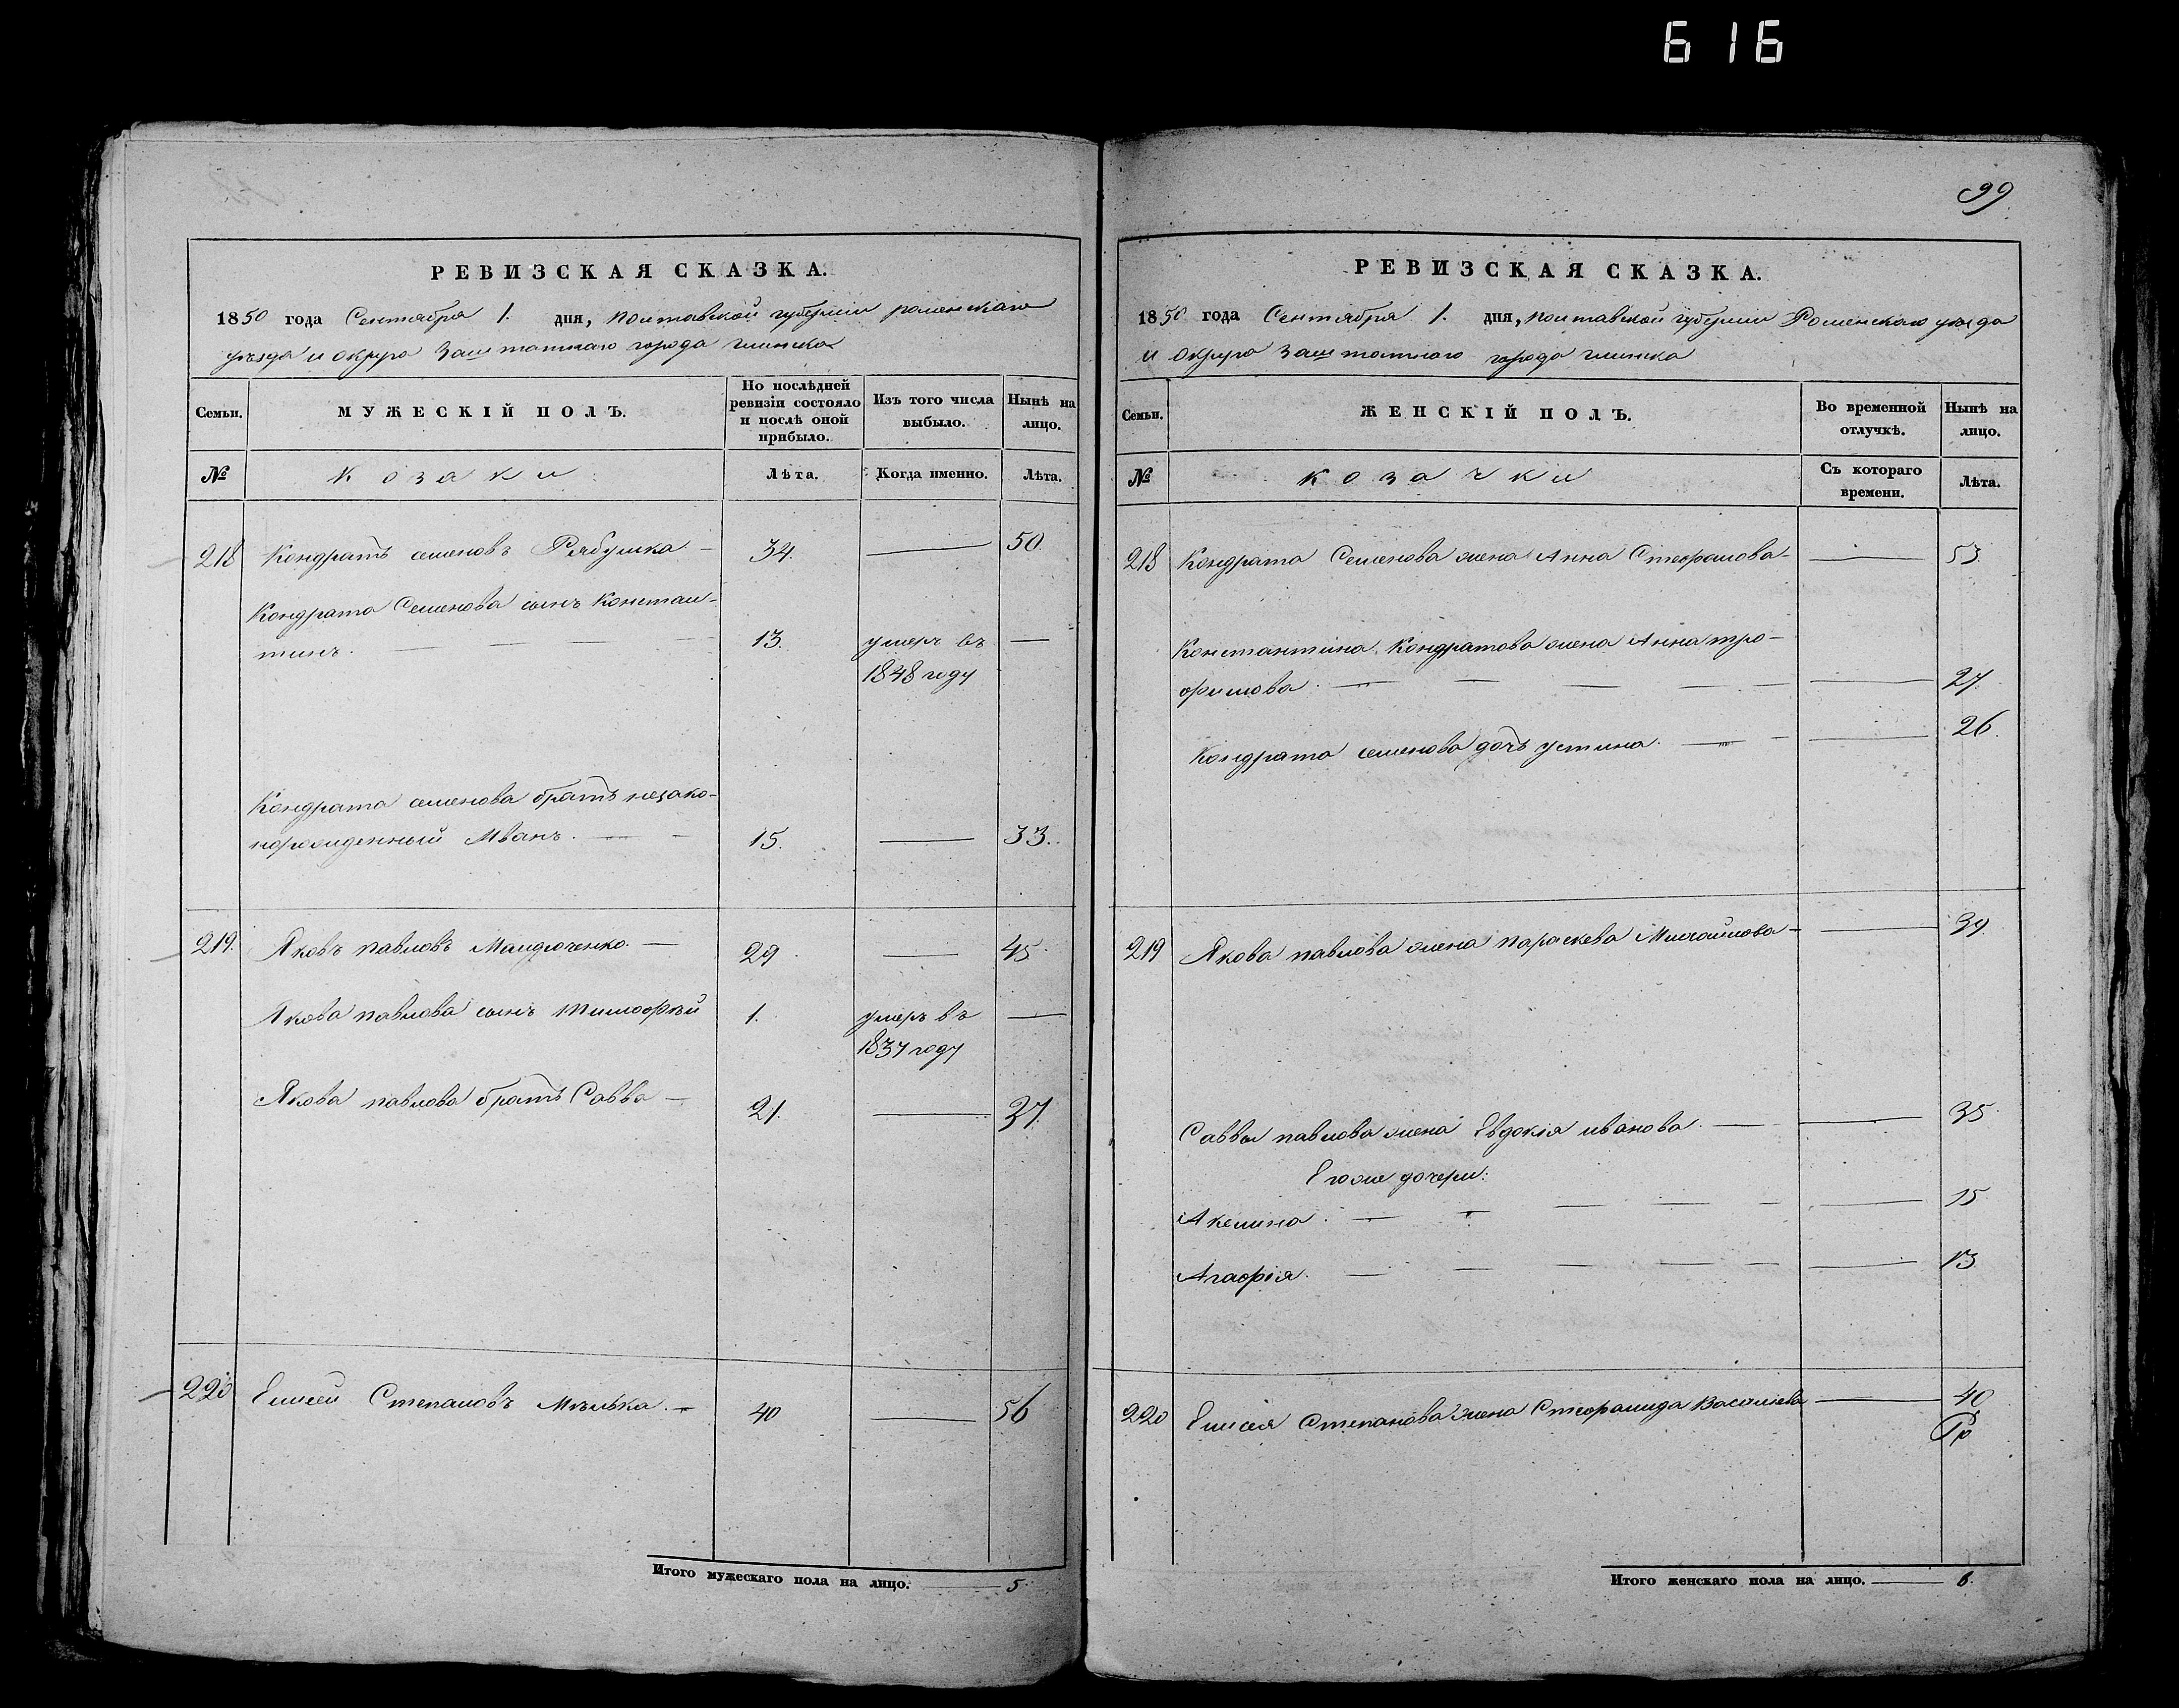 616
99
РЕВИЗСКАЯ СКАЗКА.
1850 года Сентября 1. дня, полтавской губерніи роменскаго
уѣзда и округа заштатнаго города глинска
Семьи.
МУЖЕСКІЙ ПОЛЪ.
По послѣдней
ревизіи состояло
и послѣ оной
прибыло.
Изъ того числа
выбыло.
Нынѣ на
лицо.
№
козаки
Лѣта.
Когда именно.
Лѣта.
218 Кондратъ семеновъ Рябушка — 34. — 50.
Кондрата Семенова сынъ констан-
тинъ. 13. умеръ въ —
1848 году
Кондрата семенова братъ незако-
норожденный Иванъ. 15. — 33.
219. Яковъ павловъ — 29 — 45
Якова павлова сынъ тимофѣй 1. умеръ въ —
1837 году
Якова павлова братъ Савва — 21. — 37.
220 Елисей Степановъ — 40 — 56
Итого мужескаго пола на лицо. — 5
РЕВИЗСКАЯ СКАЗКА.
1850 года Сентября 1. дня, полтавской губерніи Роменскаго уѣзда
и округа заштатного города глинска
Семьи.
ЖЕНСКІЙ ПОЛЪ.
Во временной
отлучкѣ.
Нынѣ на
лицо.
№
козачки
Съ котораго
времени.
Лѣта.
218 Кондрата Семенова жена Анна Стефанова — — 53.
Константина Кондратова жена Анна тро-
фимова. — 27.
Кондрата семенова дочь устина. — — 26.
219 Якова павлова жена параскева Михайлова — — 39
Саввы павлова жена Евдокія иванова. — — 35
Егоже дочери:
Акелина. — 15
Агафія. — 13
220 Елисея Степанова жена Стефанида Василіева — 40
Итого женскаго пола на лицо. — 8.